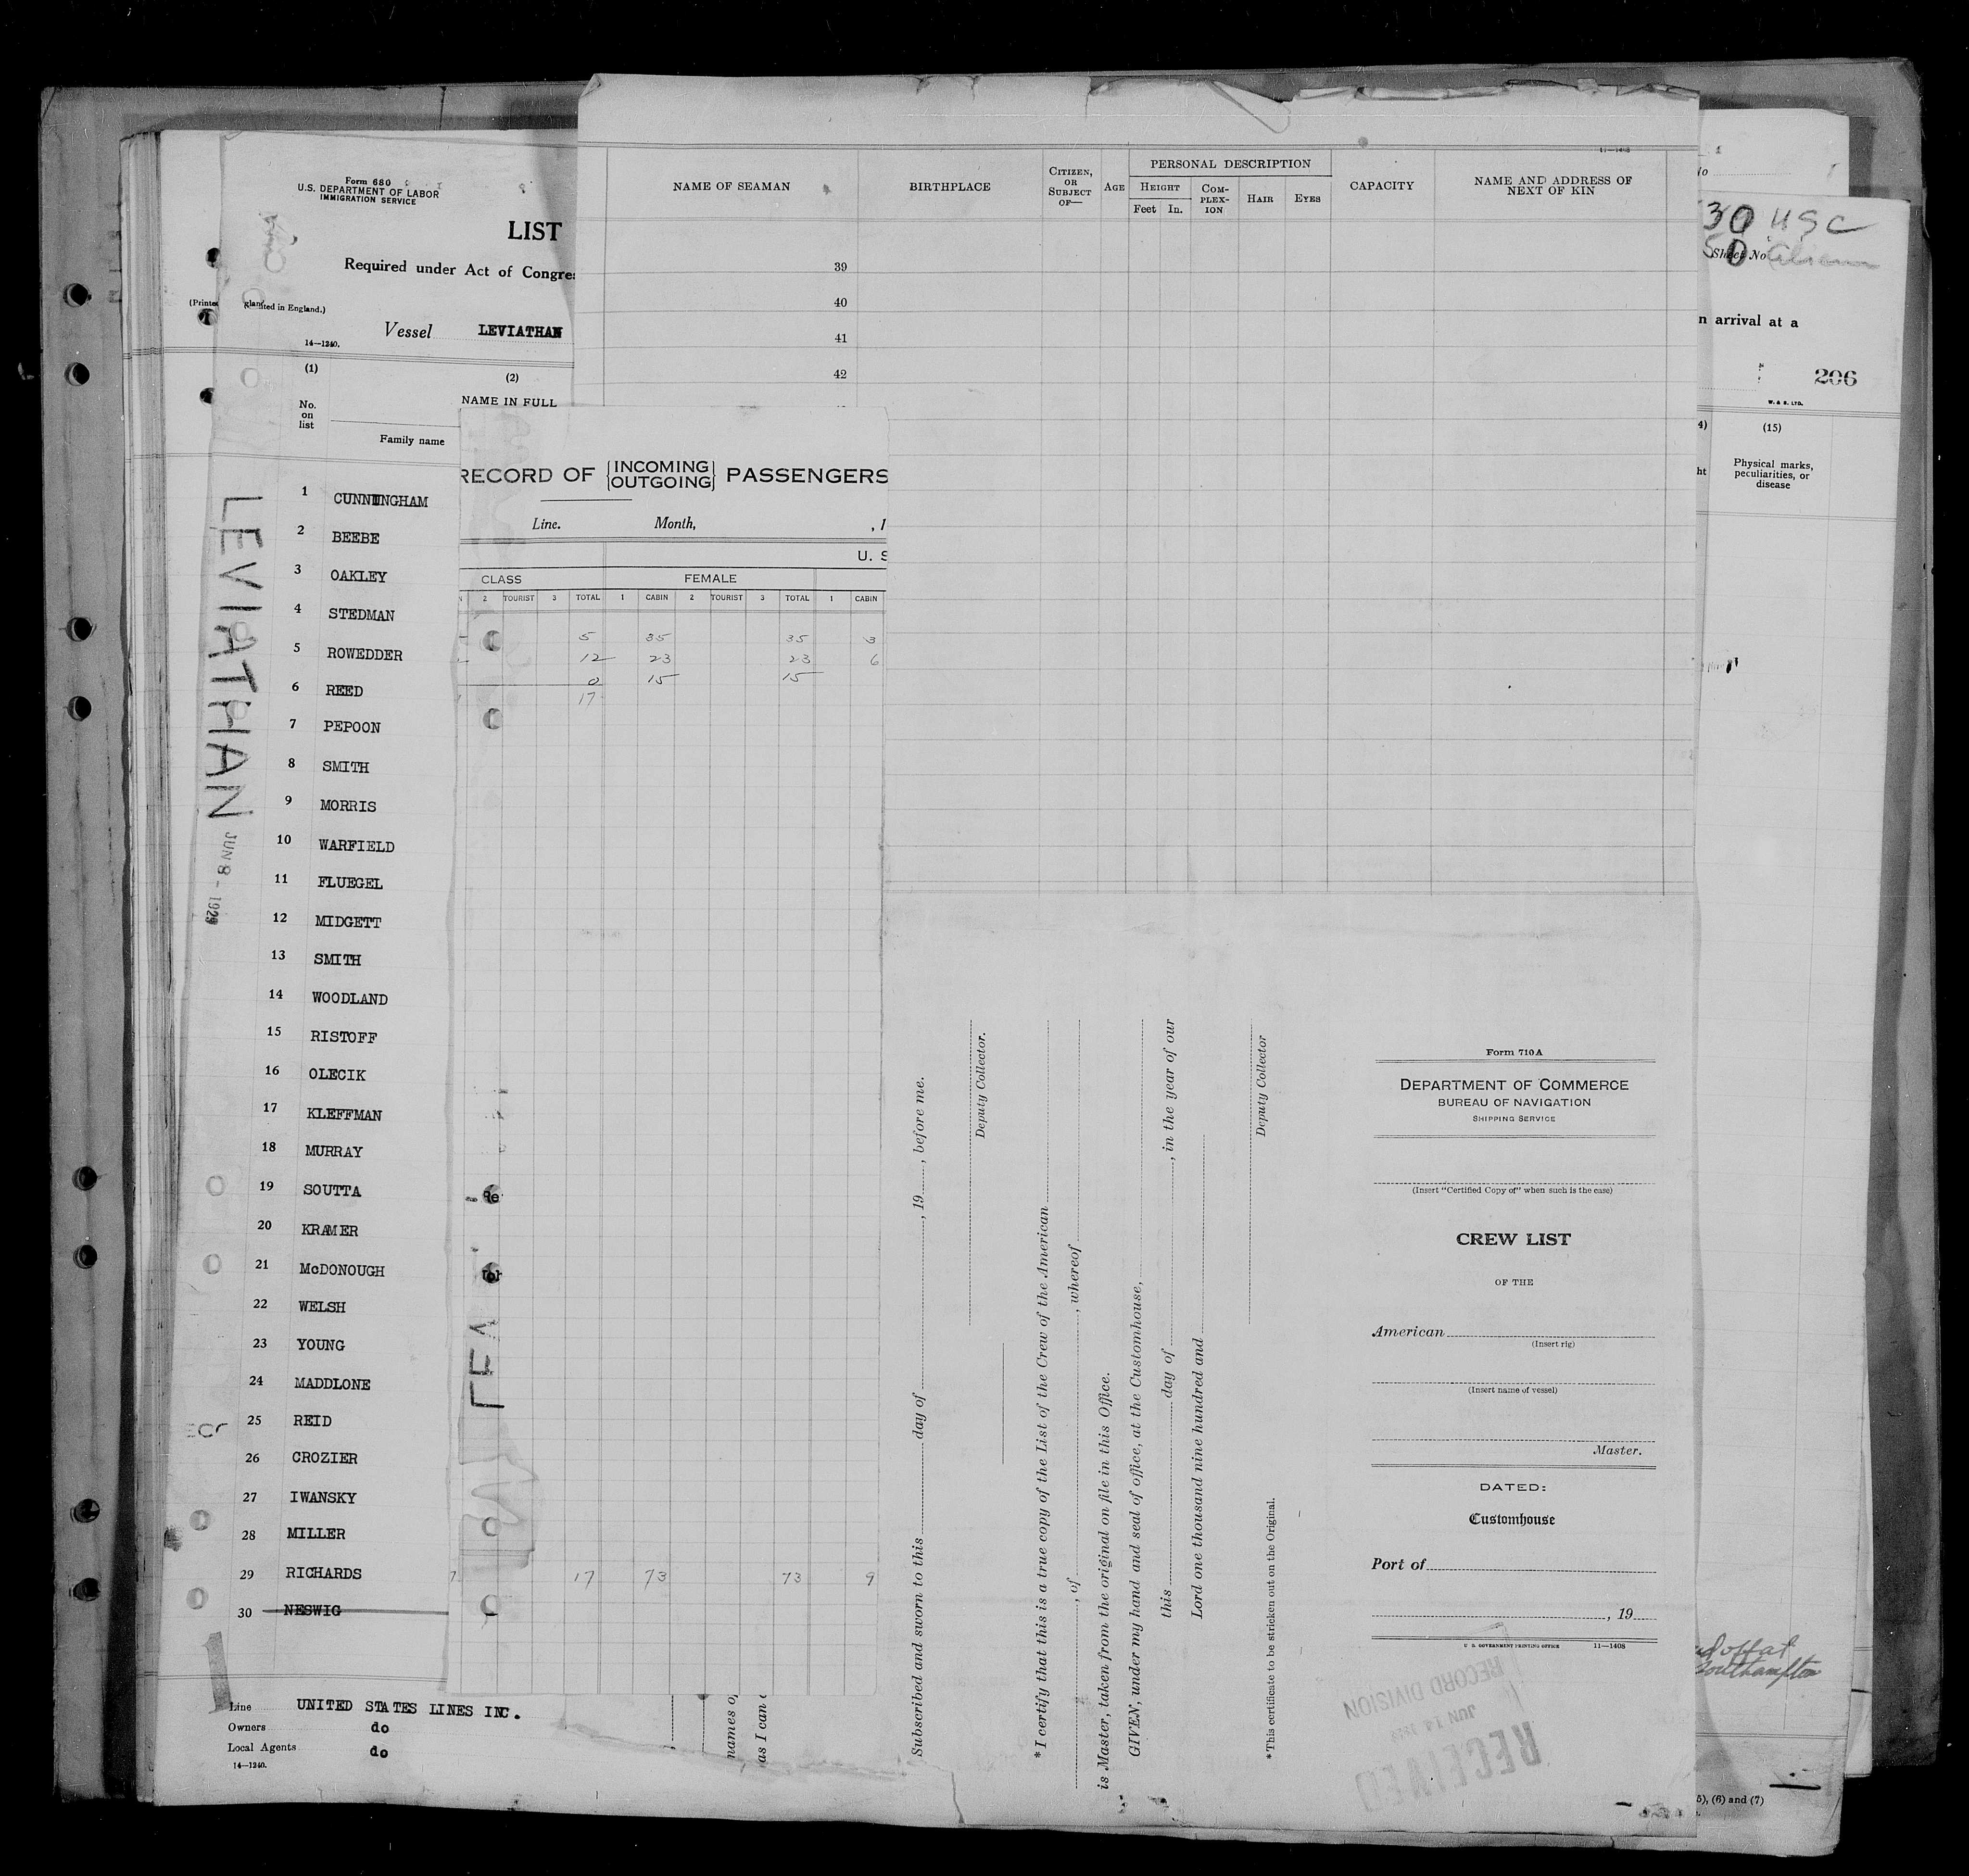 Form 680
U.S. DEPARTMENT OF LABOR
IMMIGRATION SERVICE
LIST
Required under Act of Congre
(Printe
ted in England.)
Vessel LEVIATHAN
14—1240.
(1)
(2)
No.
on
list
NAME IN FULL
Family name
1 CUNNINGHAM
2 BEEBE
3 OAKLEY
4 STEDMAN
5 ROWEDDER
6 REED
7 PEPOON
8 SMITH
9 MORRIS
10 WARFIELD
11 FLUEGEL
12 MIDGETT
13 SMITH
14 WOODLAND
15 RISTOFF
16 OLECIK
17 KLEFFMAN
18 MURRAY
19 SOUTTA
20 KRAMER
21 McDONOUGH
22 WELSH
23 YOUNG
24 MADDLONE
25 REID
26 CROZIER
27 IWANSKY
28 MILLER
29 RICHARDS
30 NESWIG
Line UNITED STATES LINES INC.
Owners do
Local Agents do
14—1240.
LEVIATHAN
JUN 8 - 1929
RECORD OF {INCOMING OUTGOING} PASSENGERS
Line. Month, , 1
U. S
CLASS FEMALE
2 TOURIST 3 TOTAL 1 CABIN 2 TOURIST 3 TOTAL 1 CABIN
5 35 35 3
12 23 23 6
0 15 15
17
17 73 73 9
LEV
names o
as I can
11—1408
NAME OF SEAMAN
BIRTHPLACE
CITIZEN,
OR
SUBJECT
OF—
AGE
PERSONAL DESCRIPTION
HEIGHT
Feet In.
COM-
PLEX-
ION
HAIR
EYES
CAPACITY
NAME AND ADDRESS OF
NEXT OF KIN
39
40
41
42
Subscribed and sworn to this day of , 19 , before me.
Deputy Collector.
* I certify that this is a true copy of the List of the Crew of the American
, of , whereof
is Master, taken from the original on file in this Office.
GIVEN, under my hand and seal of office, at the Customhouse,
this day of , in the year of our
Lord one thousand nine hundred and
Deputy Collector
* This certificate to be stricken out on the Original.
Form 710A
DEPARTMENT OF COMMERCE
BUREAU OF NAVIGATION
SHIPPING SERVICE
(Insert "Certified Copy of" when such is the case)
CREW LIST
OF THE
American
(Insert rig)
(Insert name of vessel)
Master.
DATED:
Customhouse
Port of
, 19
U. S. GOVERNMENT PRINTING OFFICE 11—1408
RECEIVED
JUN 14
RECORD DIVISION
30 USC
50
Sheet No
n arrival at a
206
W. & S. LTD.
4)
(15)
ht
Physical marks,
peculiarities, or
disease
Southampton
5), (6) and (7)